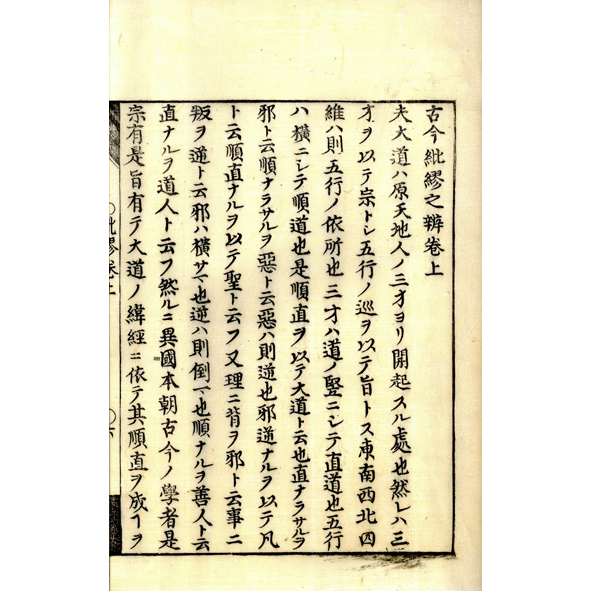 古今紕繆之辨卷上
夫大道ハ原天地人ノ三才ヨリ開起スル處也然レハ三
才ヲ以テ宗トシ五行ノ巡ヲ以テ旨トス東南西北四
維ハ則五行ノ依所也三才ハ道ノ竪ニシテ直道也五行
ハ横ニシテ順道也是順直ヲ以テ大道ト云也直ナラサルヲ
邪ト云順ナラサルヲ惡ト云惡ハ則逆也邪逆ナルヲ以テ凡
ト云順直ナルヲ以テ聖ト云フ又理ニ背ヲ邪ト云事ニ
叛ヲ逆ト云邪ハ横サマ也逆ハ則倒ヿ也順ナルヲ善人ト云
直ナルヲ道人ト云フ然ルニ異國本朝古今ノ學者是
宗有是旨有テ大道ノ緯經ニ依テ其順直ヲ成ヿヲ
紕繆卷上